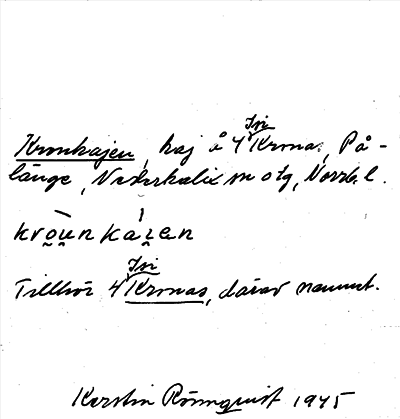 Kronkajen, kaj å 4 Kronas, På-
länge, Nederkalix sn o tg, Norrb. l.
kròu̯nkáɪen
Tillhör 4 Kronas, därav namnet.
Kerstin Rönnquist 1945